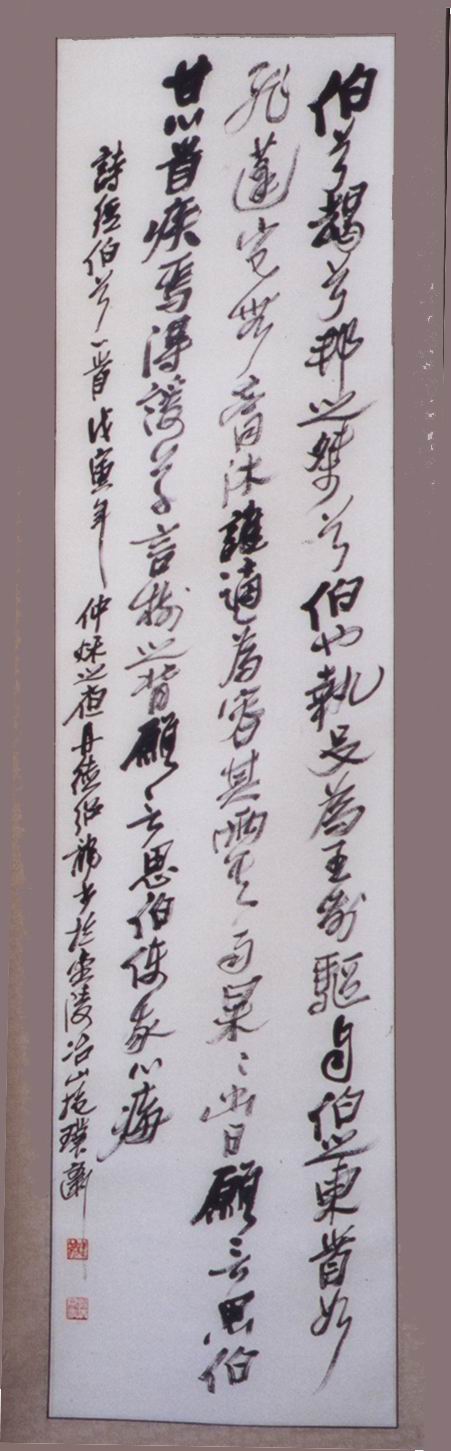 伯兮朅兮邦之桀兮伯也執殳為王前驅自伯之東首如
飛蓬豈無膏沐誰適為容其雨其雨杲〻出日願言思伯
甘心首疾焉得諼草言樹之背願言思伯使我心痗
詩經伯兮一首戊寅年仲秋之夜丹徒龍書於金陵冶山抱璞齋